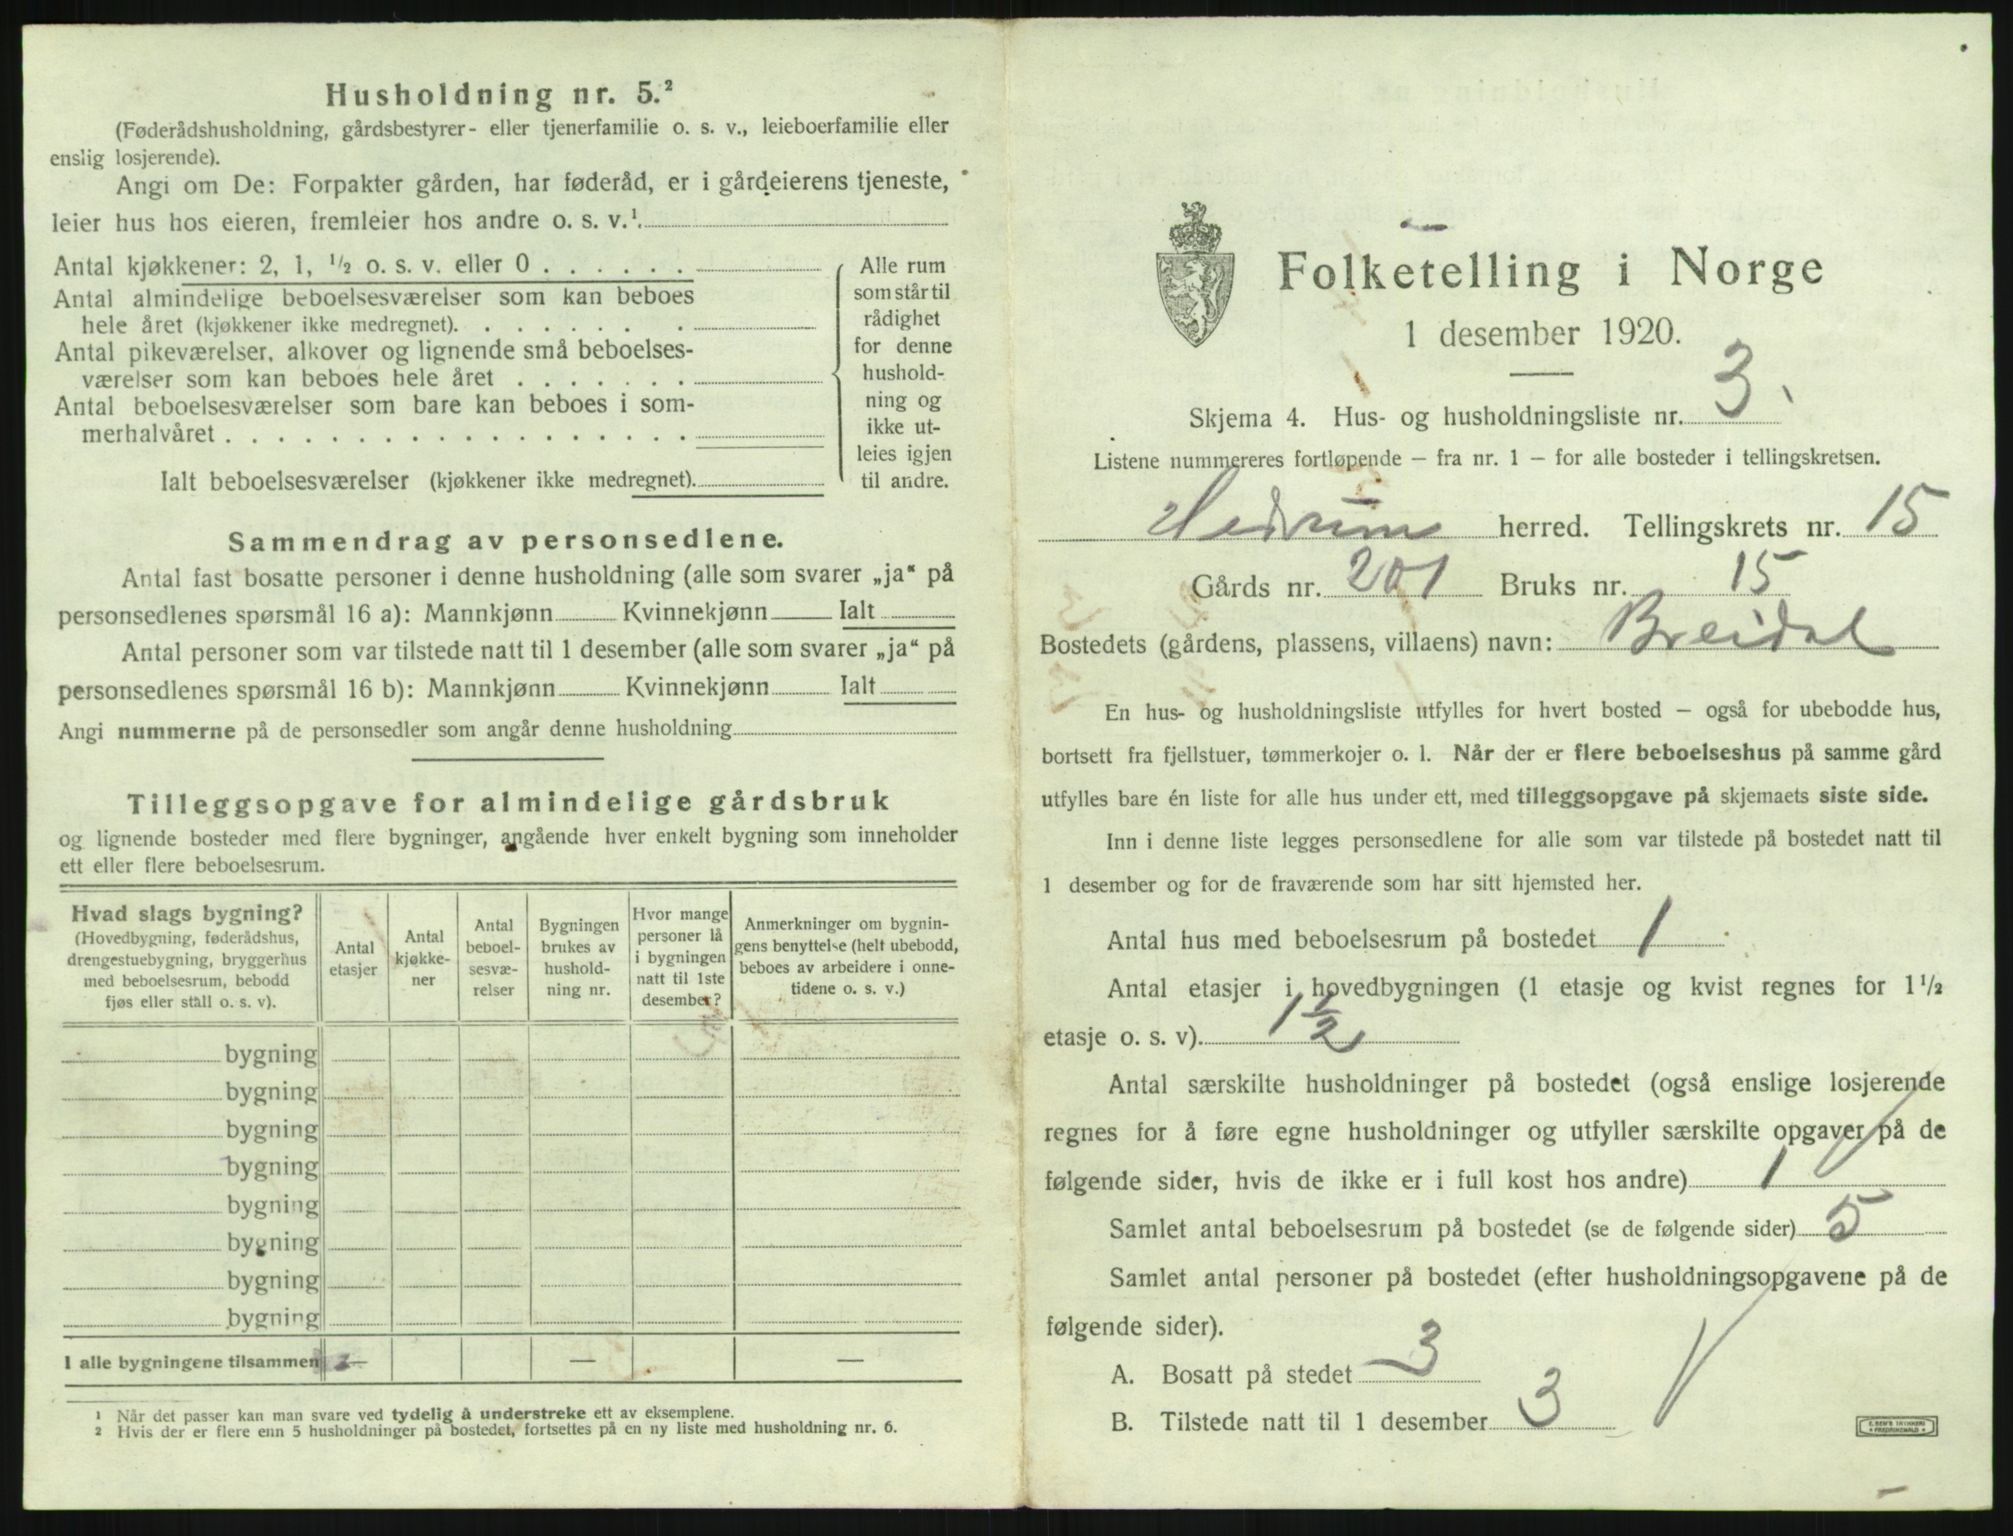 Husholdning nr. 5.²
(Føderådshusholdning, gårdsbestyrer- eller tjenerfamilie o. s. v., leieboerfamilie eller
enslig losjerende).
Angi om De: Forpakter gården, har føderåd, er i gårdeierens tjeneste,
leier hus hos eieren, fremleier hos andre o. s. v.¹.
Antal kjøkkener: 2, 1, ½ o. s. v. eller 0 . . . . . .
Antal almindelige beboelsesværelser som kan beboes
hele året (kjøkkener ikke medregnet). . . . . . . .
Antal pikeværelser, alkover og lignende små beboelses-
værelser som kan beboes hele året . . . . . . .
Antal beboelsesværelser som bare kan beboes i som-
merhalvåret . . . . . . . . . . . . . . . . . .
Ialt beboelsesværelser (kjøkkener ikke medregnet).
Alle rum
som står til
rådighet
for denne
hushold-
ning og
ikke ut-
leies igjen
til andre.
Sammendrag av personsedlene.
Antal fast bosatte personer i denne husholdning (alle som svarer „ja“ på
personsedlenes spørsmål 16 a): Mannkjønn Kvinnekjønn Ialt
Antal personer som var tilstede natt til 1 desember (alle som svarer „ja“ på
personsedlenes spørsmål 16 b): Mannkjønn Kvinnekjønn Ialt
Angi nummerne på de personsedler som angår denne husholdning
Tilleggsopgave for almindelige gårdsbruk
og lignende bosteder med flere bygninger, angående hver enkelt bygning som inneholder
ett eller flere beboelsesrum.
Hvad slags bygning?
(Hovedbygning, føderådshus,
drengestuebygning, bryggerhus
med beboelsesrum, bebodd
fjøs eller ståll o. s. v).
Antal
etasjer
Antal
kjøkke-
ner
Antal
beboel-
sesvæ-
relser
Bygningen
brukes av
hushold-
ning nr.
Hvor mange
personer lå
i bygningen
natt til 1ste
desember?
Anmerkninger om bygnin-
gens benyttelse (helt ubebodd,
beboes av arbeidere i onne-
tidene o. s. v.)
bygning
bygning
bygning
bygning
bygning
bygning
bygning
bygning
I alle bygningene tilsammen — — —
¹ Når det passer kan man svare ved tydelig å understreke ett av eksemplene.
² Hvis der er flere enn 5 husholdninger på bostedet, fortsettes på en ny liste med husholdning nr. 6.
Folketelling i Norge
1 desember 1920.
Skjema 4. Hus- og husholdningsliste nr. 3.
Listene nummereres fortløpende – fra nr. 1 – for alle bosteder i tellingskretsen.
Hedrum herred. Tellingskrets nr. 15
Gårds nr. 201 Bruks nr. 15
Bostedets (gårdens, plassens, villaens) navn: Breidal
En hus- og husholdningsliste utfylles for hvert bosted – også for ubebodde hus,
bortsett fra fjellstuer, tømmerkojer o. l. Når der er flere beboelseshus på samme gård
utfylles bare én liste for alle hus under ett, med tilleggsopgave på skjemaets siste side.
Inn i denne liste legges personsedlene for alle som var tilstede på bostedet natt til
1 desember og for de fraværende som har sitt hjemsted her.
Antal hus med beboelsesrum på bostedet 1
Antal etasjer i hovedbygningen (1 etasje og kvist regnes for 1½
etasje o. s. v). 1½
Antal særskilte husholdninger på bostedet (også enslige losjerende
regnes for å føre egne husholdninger og utfyller særskilte opgaver på de
følgende sider, hvis de ikke er i full kost hos andre) 1
Samlet antal beboelsesrum på bostedet (se de følgende sider) 5
Samlet antal personer på bostedet (efter husholdningsopgavene på de
følgende sider).
A. Bosatt på stedet 3
B. Tilstede natt til 1 desember 3